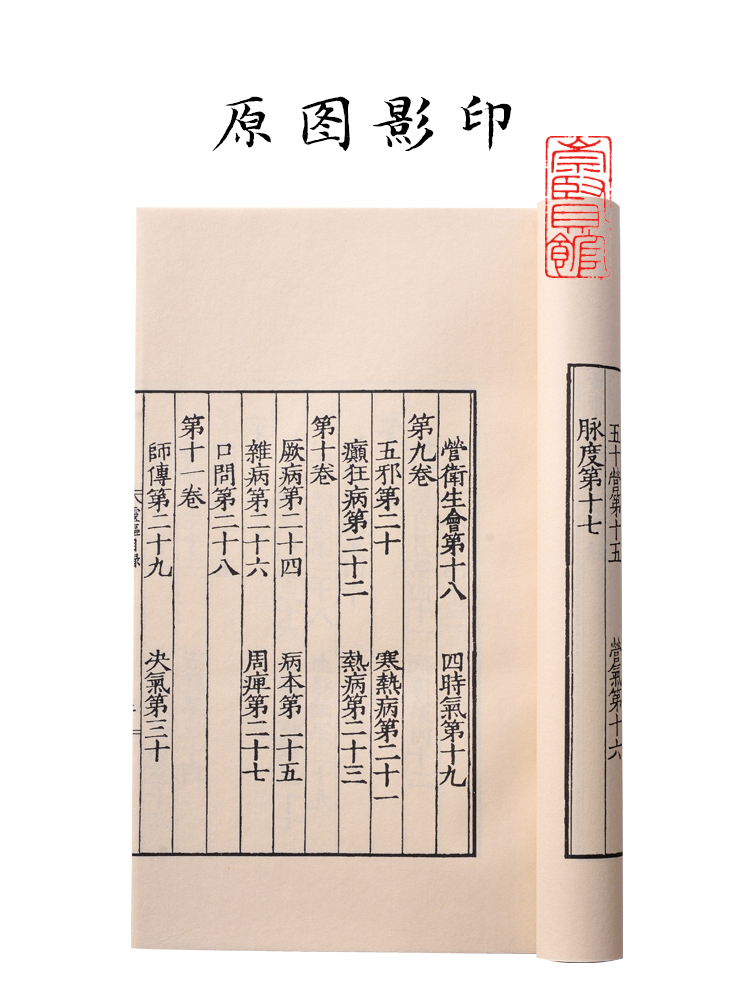 原图影印
崇賢館
五十營第十五 營氣第十六
脉度第十七
營衛生會第十八 四時氣第十九
第九卷
五邪第二十 寒熱病第二十一
癲狂病第二十二 熱病第二十三
第十卷
厥病第二十四 病本第二十五
雜病第二十六 周痺第二十七
口問第二十八
第十一卷
師傳第二十九 决氣第三十